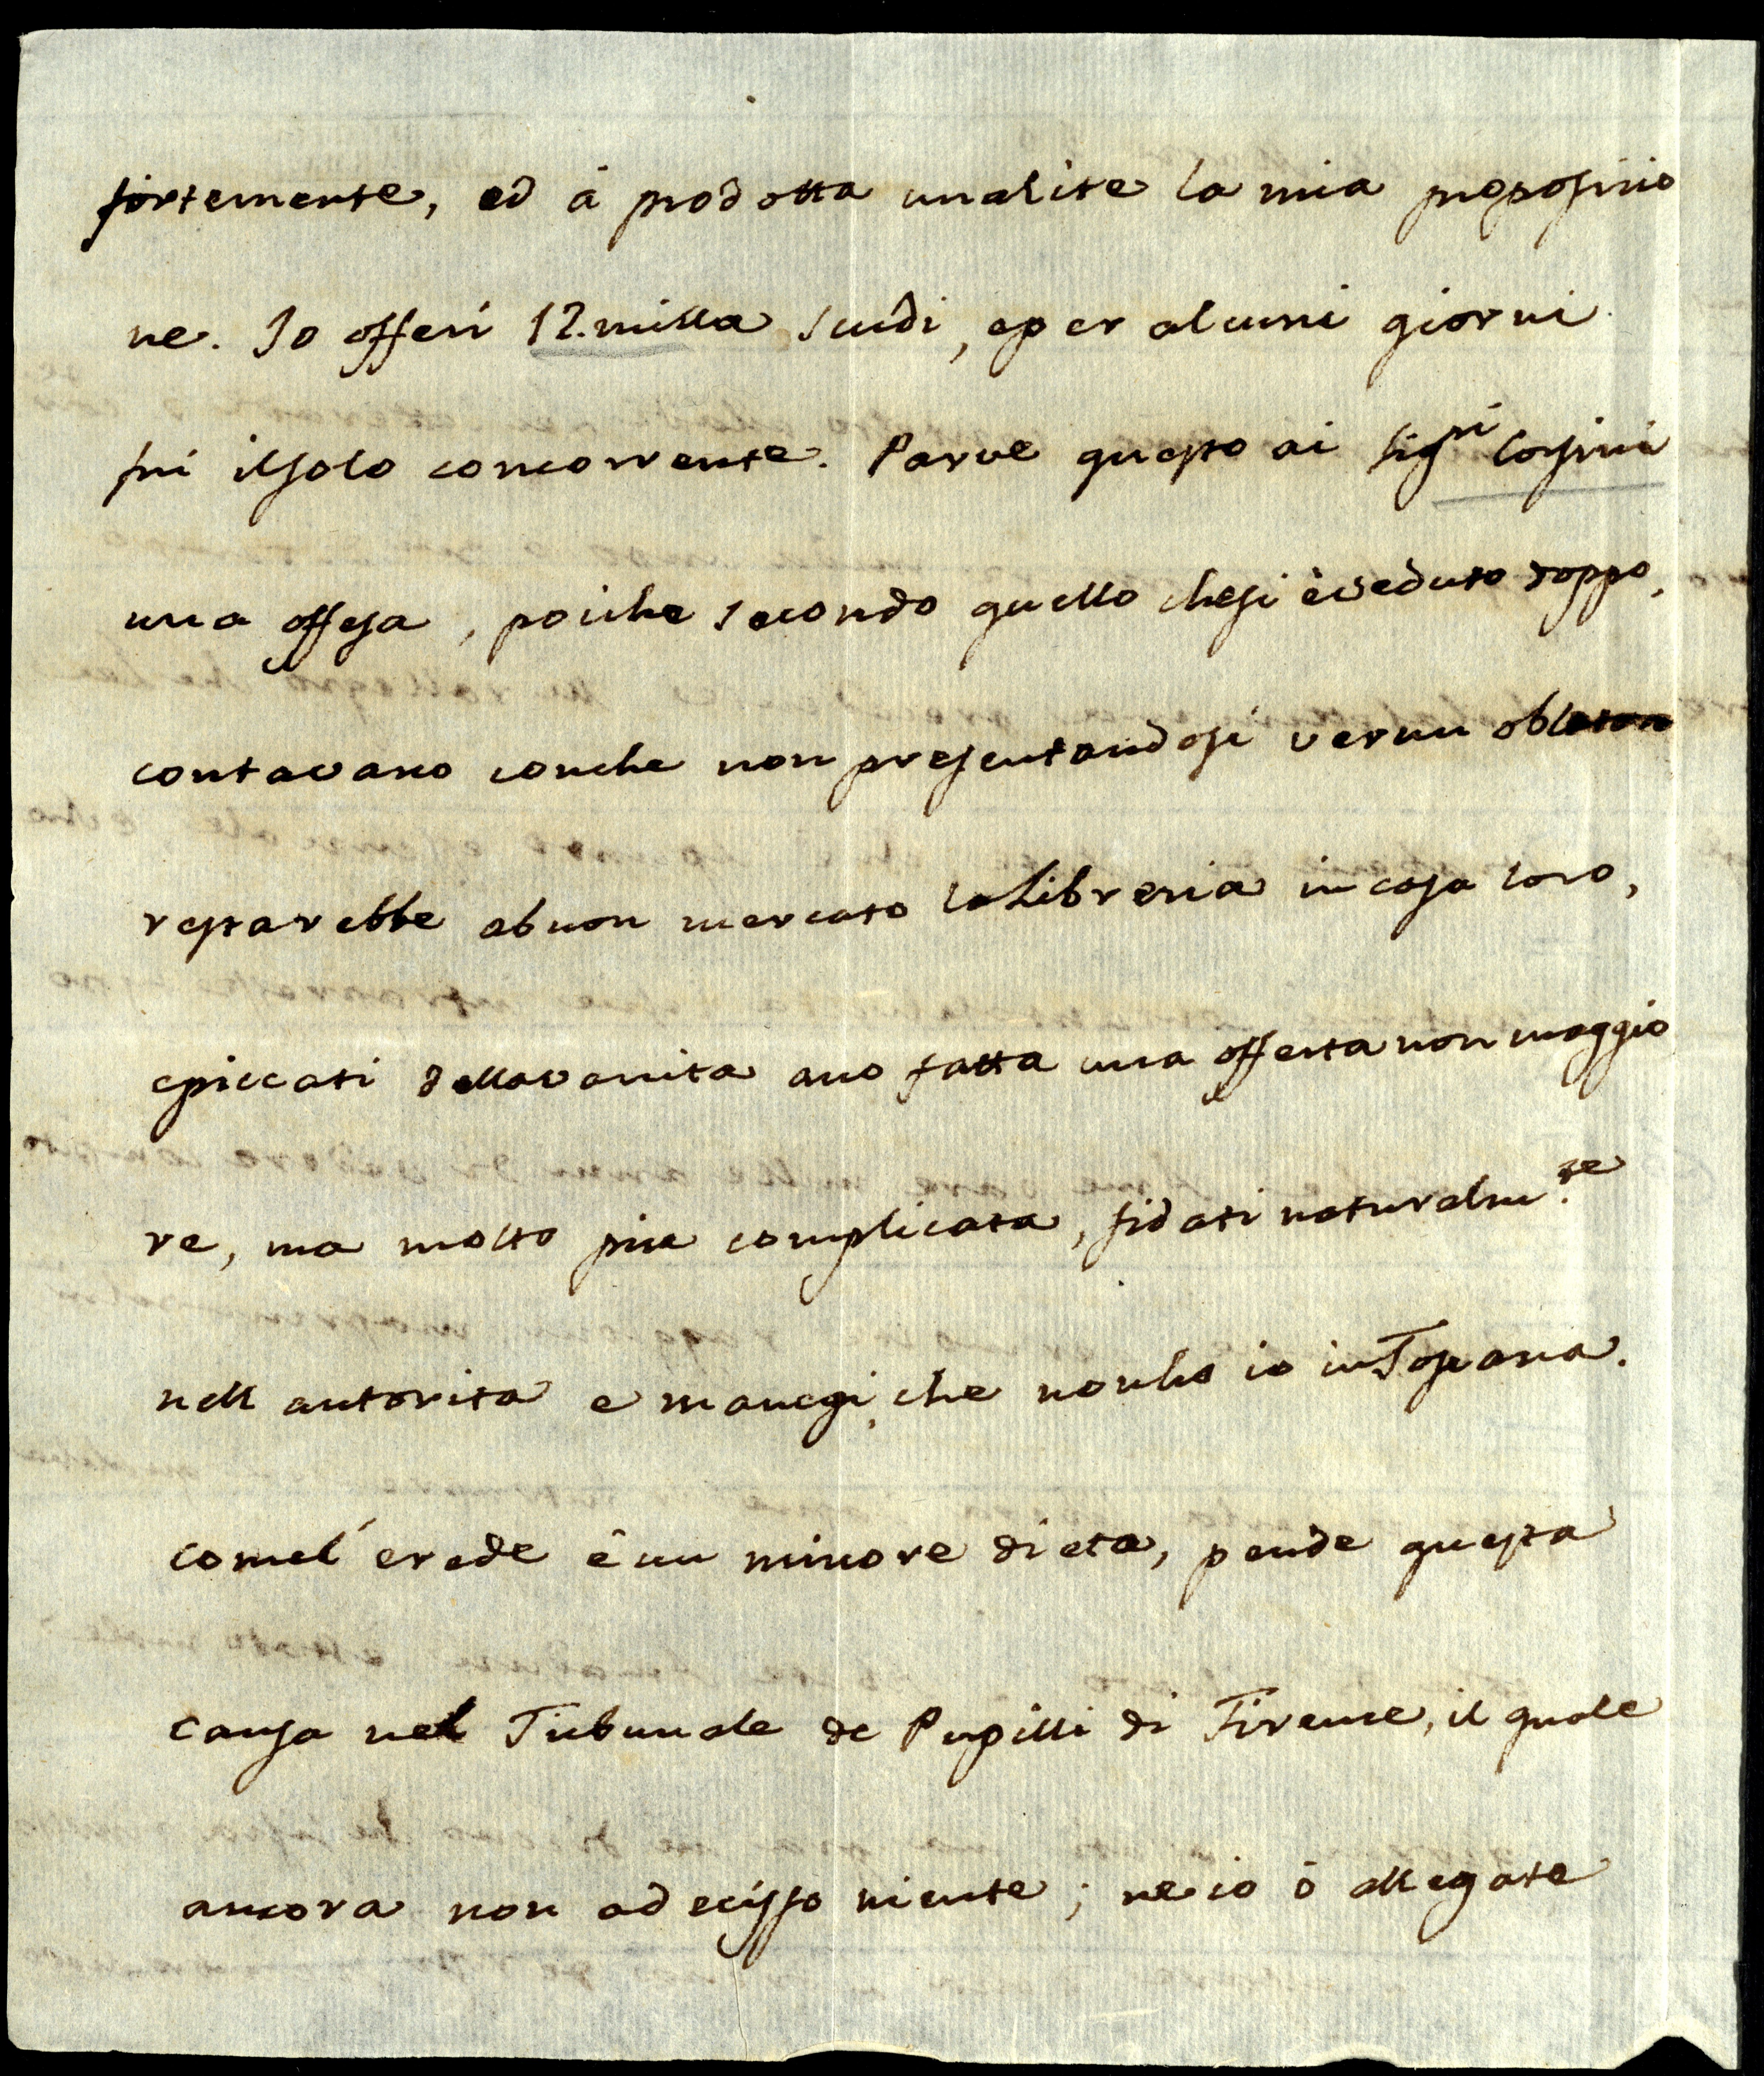 fortemente, ed à prodotta unalite la mia proposizio
ne. Io offerì 12.milla scudi, eper alcuni giorni
fui ilsolo concorrente. Parve questo ai Sig.ri Corsini
una offesa, poiche secondo quello chesi èveduto doppo,
contavano conche non presentandosi verun oblatore
restarebbe abuon mercato laLibreria in casa loro,
epiccati dellavanita ano fatta una offerta non maggio
re, ma molto piu complicata, fidati naturalm.te
nell autorita e manegi, che nonho io inToscana.
comel' erede è un minore dieta, pende questa
causa nel Tribunale de Pupilli di Firenze, il quale
ancora non adecisso niente; ne io ò allegate